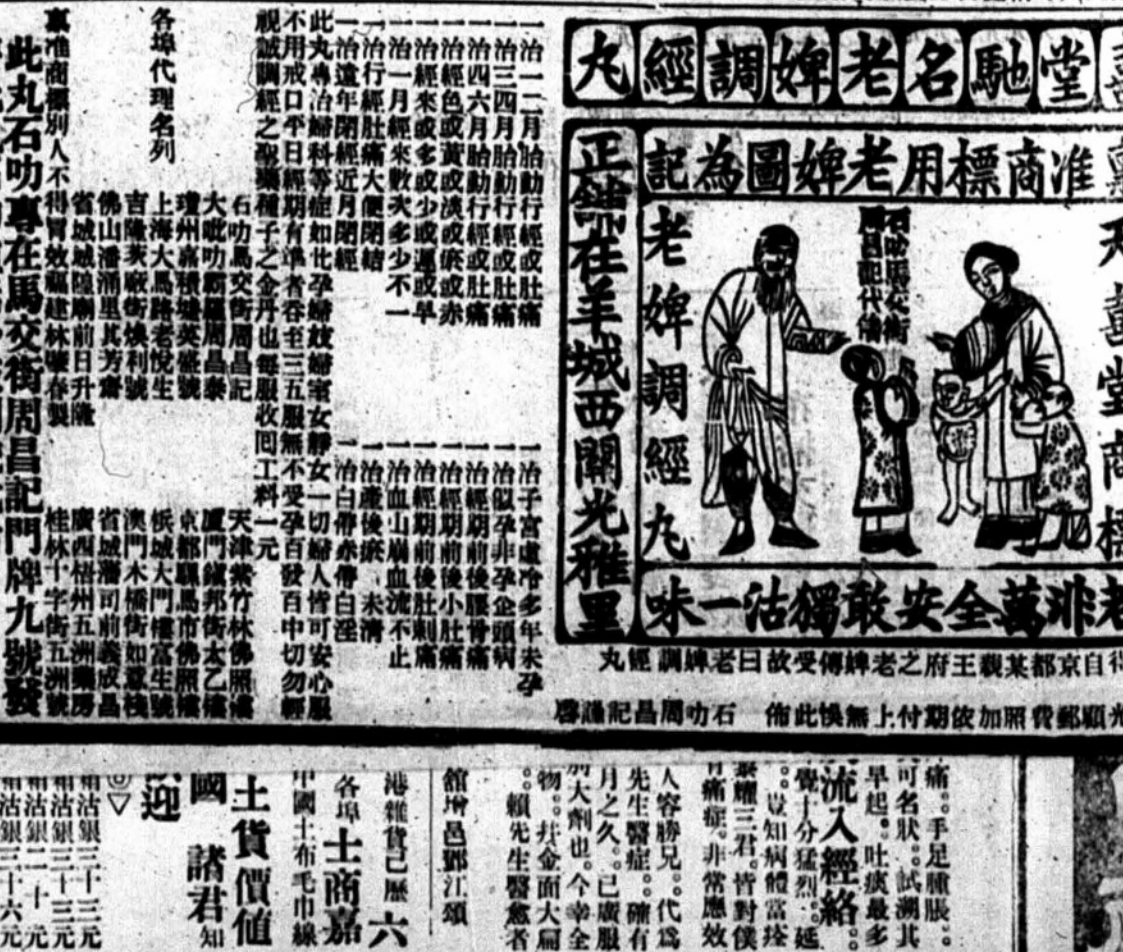 堂馳名老婢調經丸
准商標用老婢圖為記
天喜堂商標
石叻馬交街
周昌記代傳
老婢調經丸
非萬全安敢獨沽一味
正舖在羊城西關光雅里
得自京都某親王府之老婢傳受故曰老婢調經丸
光顧郵費照加依期付上無悞此佈 石叻周昌記謹啓
一治一二月胎動行經或肚痛
一治三四月胎動行經或肚痛
一治四六月胎動行經或肚痛
一治經色或黃或淡或瘀或赤
一治經來或多或少或遲或早
一治一月經來數次多少不一
一治行經肚痛大便閉結
一治遠年閉經近月閉經
一治子宮虛冷多年未孕
一治似孕非孕企頭病
一治經期前後腰骨痛
一治經期前後小肚痛
一治經期前後肚刺痛
一治血山崩血流不止
一治產後瘀血未清
一治白帶赤帶白淫
此丸專治婦科等症如此孕婦故婦室女靜女一切婦人皆可安心服
不用戒口平日經期有準者吞至三五服無不受孕百發百中切勿輕
視誠調經之聖藥種子之金丹也每服收回工料一元
各埠代理名列
石叻馬交街周昌記
大吡叻霸羅周昌泰
瓊州嘉積墟英盛號
上海大馬路老悅生
吉隆茨廠街煥利號
佛山潘涌里其芳齋
省城城隍廟前日升隆
天津紫竹林佛照樓
廈門鎮邦街太乙樓
京都騾馬市佛照樓
檳城大門樓富生號
澳門木橋街如意棧
省城藩司前義成昌
廣西梧州五洲藥房
桂林十字街五洲號
稟准商標別人不得冒效福建林肇春製
此丸石叻專在馬交街周昌記門牌九號發
痛。手足腫脹。
可名狀。試溯其
早起。吐痰最多
流入經絡。
覺十分猛烈。延
豈知病體當痊
耀三君。皆對僕
痛症。非常應效
人容勝兄。代爲
先生醫症。確有
月之久。已廣服
別大劑也。今幸全
物。并金面大扁
賴先生醫愈者
舘增邑鄧江頌
港雜貨已歷六
各埠士商嘉
中國土布毛巾線
土貨價值
國 諸君知
迎
沽銀三十三元
沽銀三十三元
沽銀二十元
沽銀三十六元